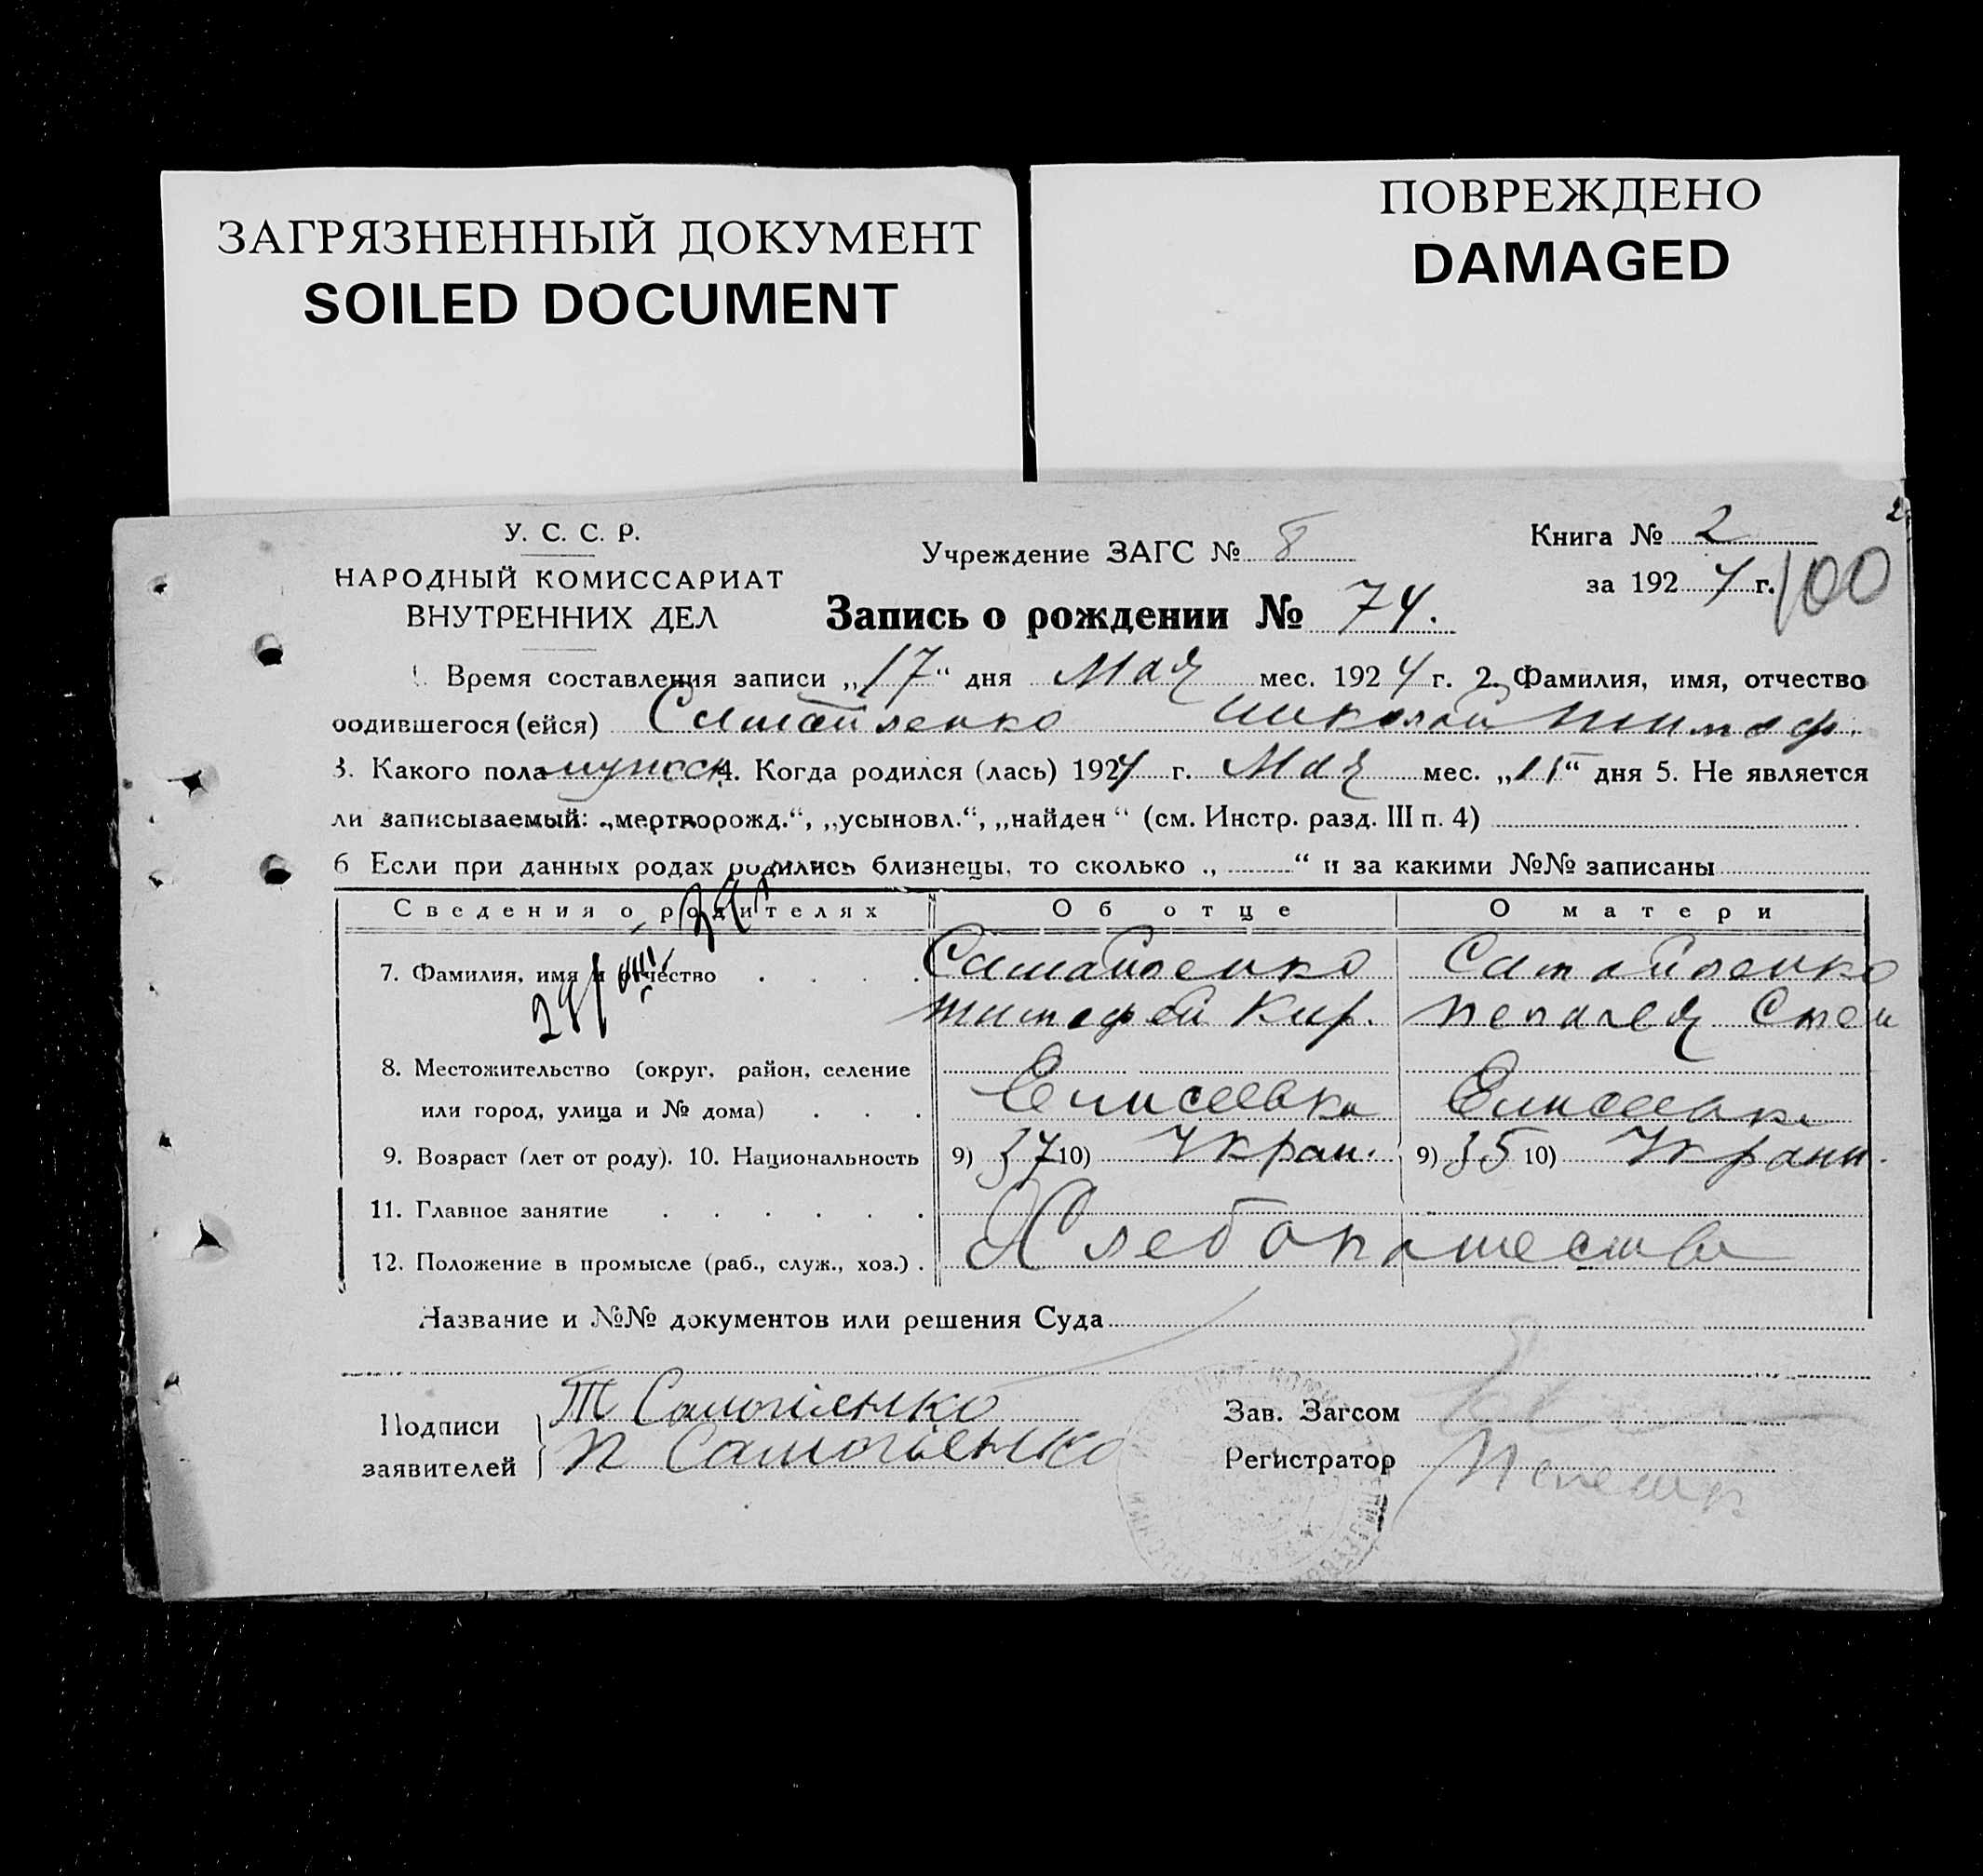 ЗАГРЯЗНЕННЫЙ ДОКУМЕНТ
SOILED DOCUMENT
ПОВРЕЖДЕНО
DAMAGED
2
У. С. С. Р.
НАРОДНЫЙ КОМИССАРИАТ
ВНУТРЕННИХ ДЕЛ
Учреждение ЗАГС № 8
Книга № 2
за 1924 г.
100
Запись о рождении № 74.
Время составления записи „17“ дня Мая мес. 1924 г. 2. Фамилия, имя, отчество
родившегося (ейся) Самойленко Николай Тимоф.
3. Какого пола мужск 4. Когда родился (лась) 1924 г. Мая мес. „15“ дня 5. Не является
ли записываемый: „мертворожд.“, „усыновл.“, „найден“ (см. Инстр. разд. III п. 4)
6 Если при данных родах родились близнецы, то сколько „ “ и за какими №№ записаны
Сведения о родителях Об отце О матери
7. Фамилия, имя и отчество Самойленко Самойленко
Тимофей Кир. Пелагея Степ
8. Местожительство (округ, район, селение
или город, улица и № дома) Елисеевка Елисеевка
9. Возраст (лет от роду). 10. Национальность 9) 37 10) Украин. 9) 35 10) Украин.
11. Главное занятие
12. Положение в промысле (раб., служ., хоз.) Хлебопашество
Название и №№ документов или решения Суда
Подписи Т Самойленко
заявителей П Самойленко
Зав. Загсом
Регистратор